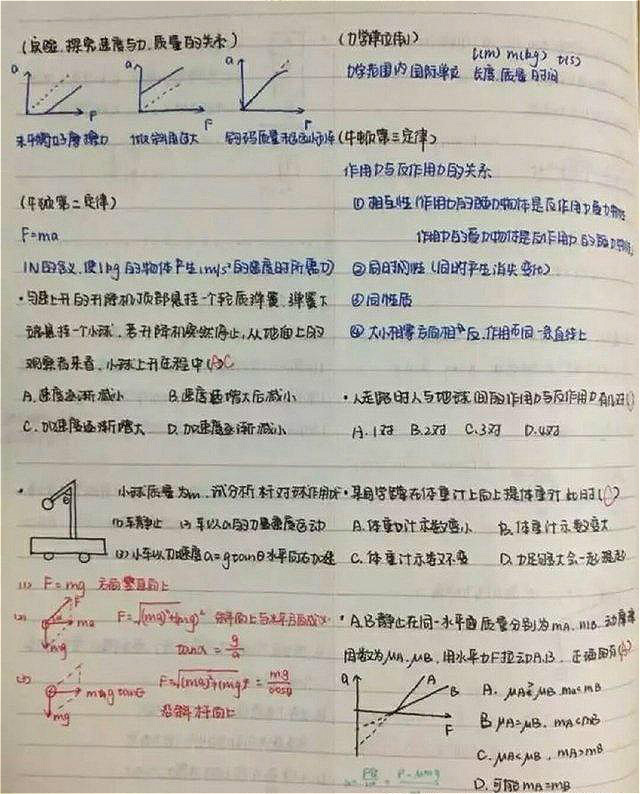 (实验.探究速度与力.质量的关系)
a a a
F F F
未平衡好摩擦力
(牛顿第二定律)
F=ma
1N的含义.使1kg的物体产生1m/s²的速度时所需力)
·匀速上升的升降机顶部悬挂一个轻质弹簧.弹簧下
端悬挂一个小球.若升降机突然停止,从地面上的
观察者来看,小球上升过程中(A)C
A.速度逐渐减小 B.速度逐增大后减小
C.加速度逐渐增大 D.加速度逐渐减小
· 小球质量为m.试分析杆对球作用力F
θ
(1)车静止 (2)车以a的加速度运动
(3)小车以加速度a=gtanθ水平向右加速
(1) F=mg 方向竖直向上
(2) F ma mg F=√(ma)²+(mg)² 斜向上与水平方向成
tanα=g/a
(3) mg F=√(ma)²+(mg)²=mg/cosθ
沿斜杆向上
(力学单位制)
l(m) m(kg) t(s)
力学范围内国际单位 长度.质量.时间
(牛顿第三定律)
作用力与反作用力的关系
①相互性(作用力的施力物体是反作用力受力物
作用力的受力物体是反作用力的施力
②同时性(同时产生消失变化)
③同性质
④大小相等方向相反.作用在同一条直线上
·人走路时人与地球间的作用力与反作用力有几对()
A.1对 B.2对 C.3对 D.4对
·某同学蹲在体重计上向上提体重计 此时()
A.体重计示数变小 B.体重计示数变大
C.体重计示数不变 D.力足够大会一起提起
·A.B静止在同一水平面质量分别为mA.mB.动摩擦
因数为μA.μB.用水平力F拉动A.B.正确的有(A)
a A B F
A. μA>μB mA<mB
B μA=μB. mA<mB
C. μA<μB. mA>mB
D.可能mA=mB